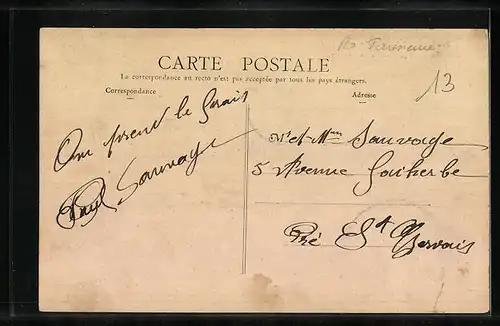 CARTE POSTALE
La correspondance au recto n'est pas acceptée par tous les pays étrangers.
Correspondance
Adresse
13
On prend le frais
Paul Sauvage
Mr et Mme Sauvage
5 Avenue Faidherbe
Pré St Gervais